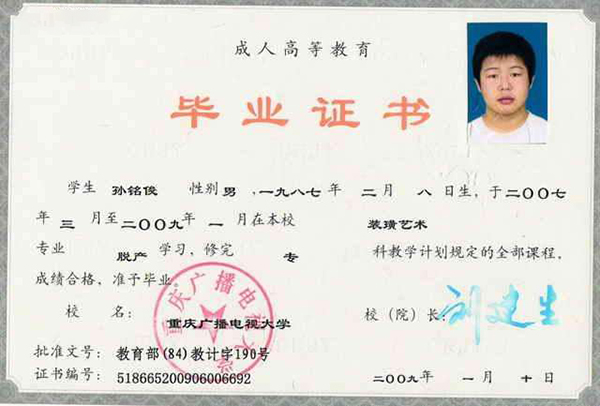 成人高等教育
毕业证书
学生 孙铭俊 性别 男,一九八七年 二月 八日生,于二〇〇七
年 三 月至二〇〇九年 一 月在本校 装璜艺术
专业 脱产 学习,修完 专 科教学计划规定的全部课程,
成绩合格,准予毕业。
校 名: 重庆广播电视大学 校(院)长: 刘建生
批准文号: 教育部(84)教计字190号
证书编号: 518665200906006692 二〇〇九年 一月 十日
重庆广播电视大学